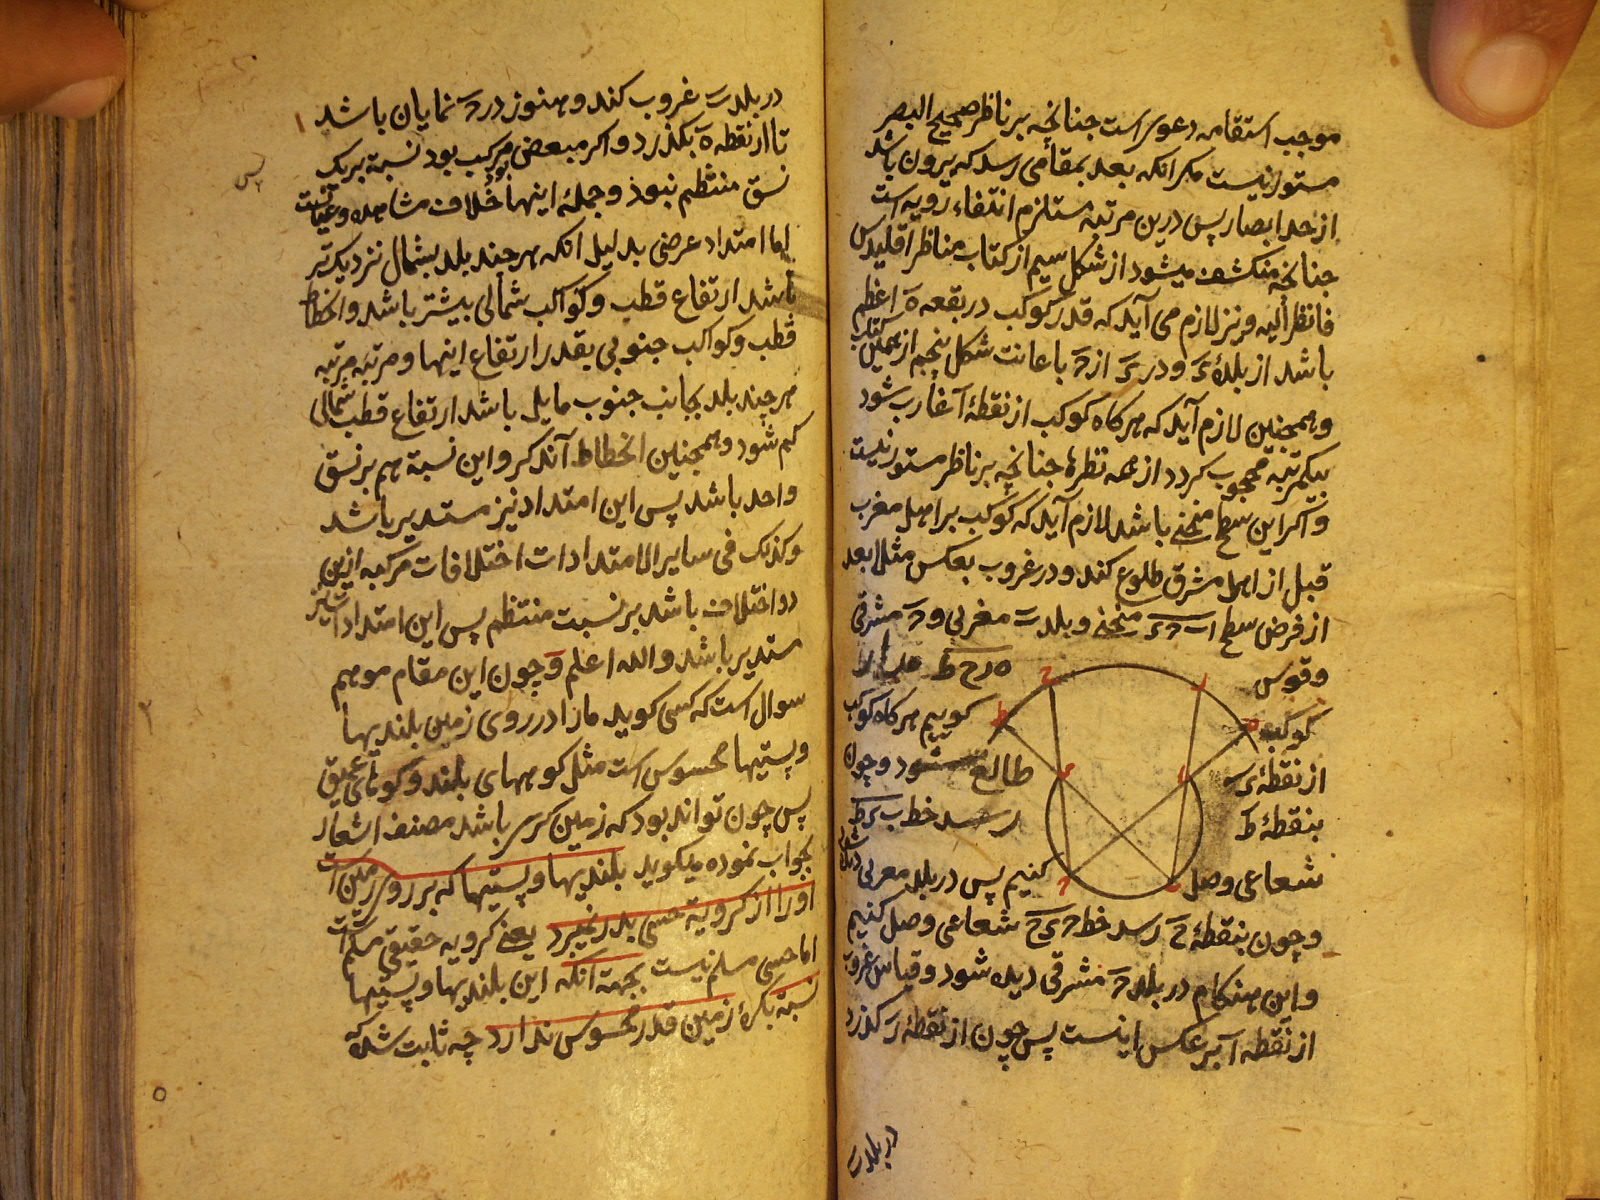 موجب استقامه دعوی است جنانچه بر ناظر صحیح البصر
مستور نیست مکر انکه بعد بمقامی رسد که بیرون باشد
از حد ابصار پس درین مرتبه مستلزم انتفاء رویه است
جنانچه منکشف میشود از شکل سیم از کتاب مناظر اقلیدس
فانظر الیه و نیز لازم می آید که قدر کوکب در بقعه ه اعظم
باشد از بلدۀ و در از باعانت شکل پنجم از همین کتاب
و همچنین لازم آید که هرکاه کوکب از نقطۀ آ غارب شود
بیکمرتبه محجوب کردد از همه نظرها جنانچه بر ناظر مستور نیست
و اکر این سطح منحنی باشد لازم آید که کوکب بر اهل مغرب
قبل از اهل مشرق طلوع کند و در غروب بعکس مثلا بعد
از فرض سطح منحنی و بلد ب مغربی و مشرقی
و قوس ه ر ح ط
کوکب کوییم هرکاه کوکب
از نقطۀ طالع شود و چون
بنقطۀ ط رسد خط ب ط
شعاعی وصل کنیم پس در بلد مغربی
و چون بنقطۀ ح رسد خط شعاعی وصل کنیم
و این هنکام در بلد مشرقی دیده شود و قیاس غروب
از نقطه آ بر عکس اینست پس چون از نقطۀ ر کذرد
در بلد ب
در بلد ب غروب کند و هنوز در نمایان باشد
تا از نقطه ه بکذرد و اکر مبعضی مرکب بود نسبة بریک
نسق منتظم نبود و جملۀ اینها خلاف مشاهده و عیانست
پس
اما امتداد عرضی بدلیل انکه هر چند بلد بشمال نزدیک تر
باشد ارتفاع قطب و کواکب شمالی بیشتر باشد و انحطاط
قطب و کواکب جنوبی بقدر ارتفاع اینها و مرتبه مرتبه
هر چند بلد بجانب جنوب مایل باشد ارتفاع قطب شمالی
کم شود و همجنین انحطاط آندکر و این نسبة هم بر نسق
واحد باشد پس این امتداد نیز مستدیر باشد
و کذلک فی سایر الامتدادات اختلافات مرکبه ازین
دو اختلاف باشد بر نسبت منتظم پس این امتدادات نیز
مستدیر باشد والله اعلم و چون این مقام موهم
سوال است که کسی کوید مارا در روی زمین بلندیها
و پستیها محسوس است مثل کوههای بلند و کوهای عمیق
پس چون تواند بود که زمین کری باشد مصنف اشعار
بجواب نموده میکوید بلندیها و پستیها که بر روی زمین است
او را از کرویة حسی بدر نمیبرد یعنی کرویه حقیقی مسلم است
اما حسی مسلم نیست بجهة انکه این بلندیها و پستیها
نسبة بکرۀ زمین قدر محسوس ندارد چه ثابت شده که